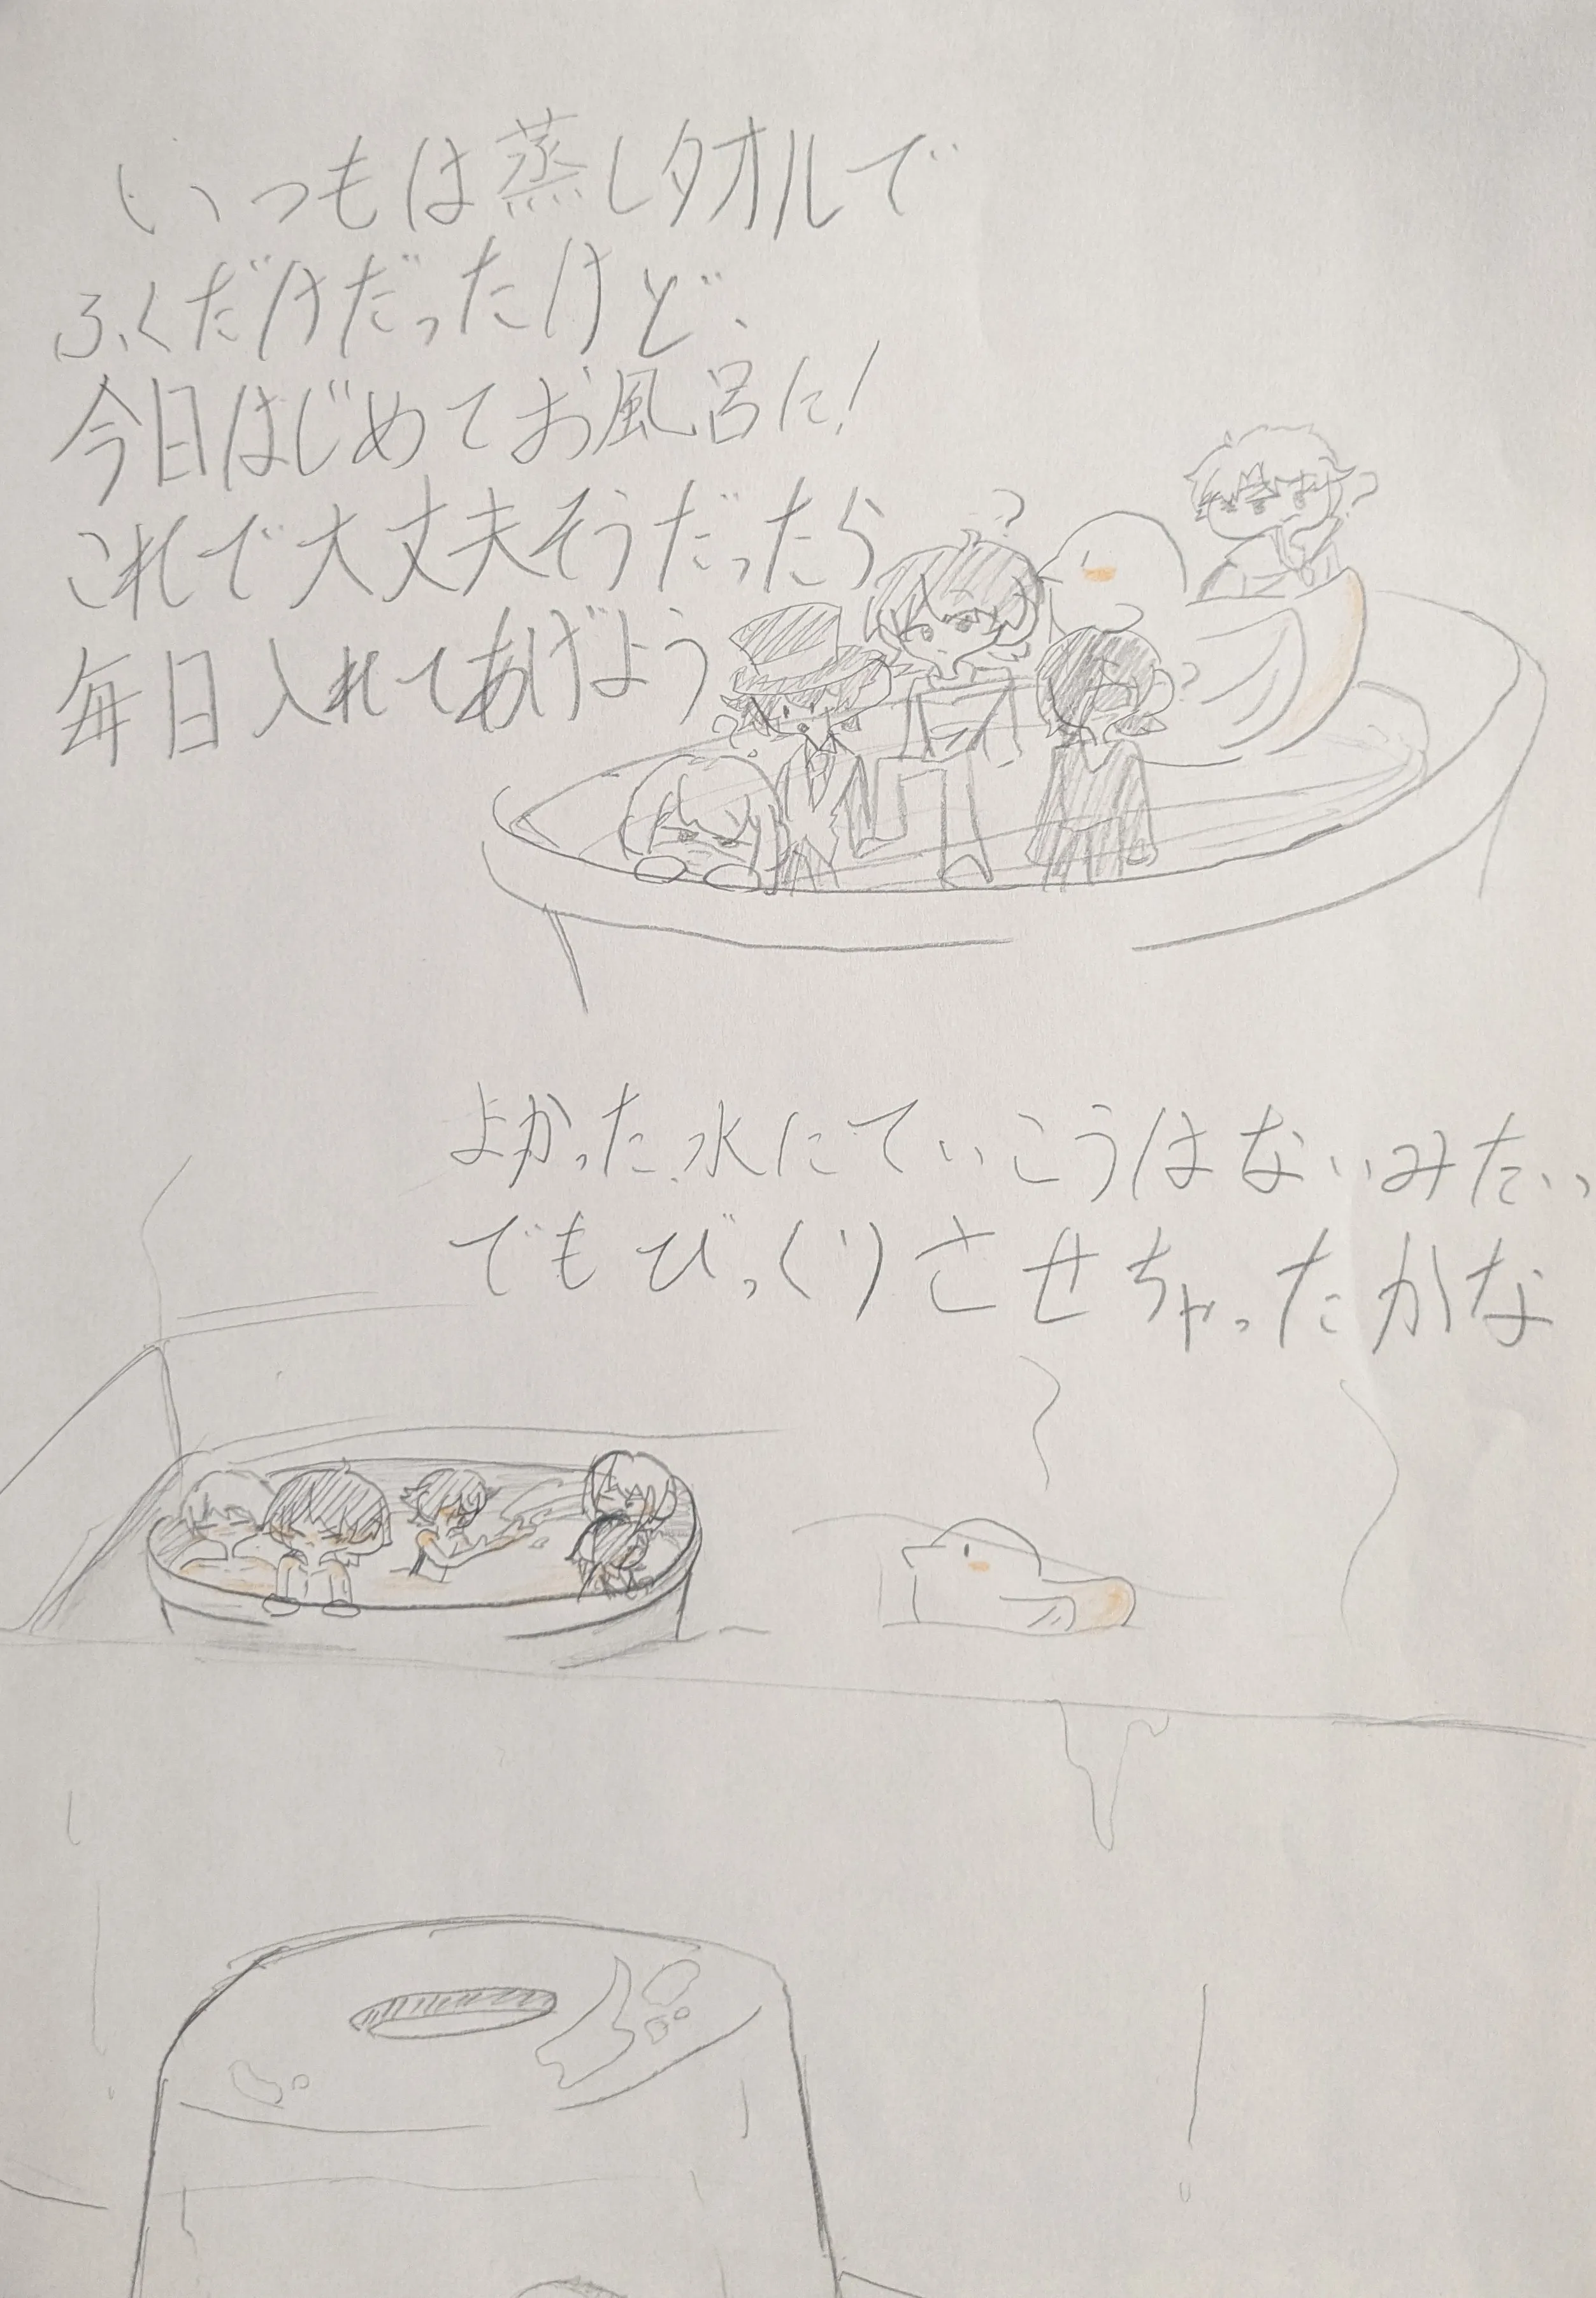 いつもは蒸しタオルで
ふくだけだったけど、
今日はじめてお風呂に!
これで大丈夫そうだったら
毎日入れてあげよう
?
?
?
?
よかった、水にていこうはないみたい
でもびっくりさせちゃったかな